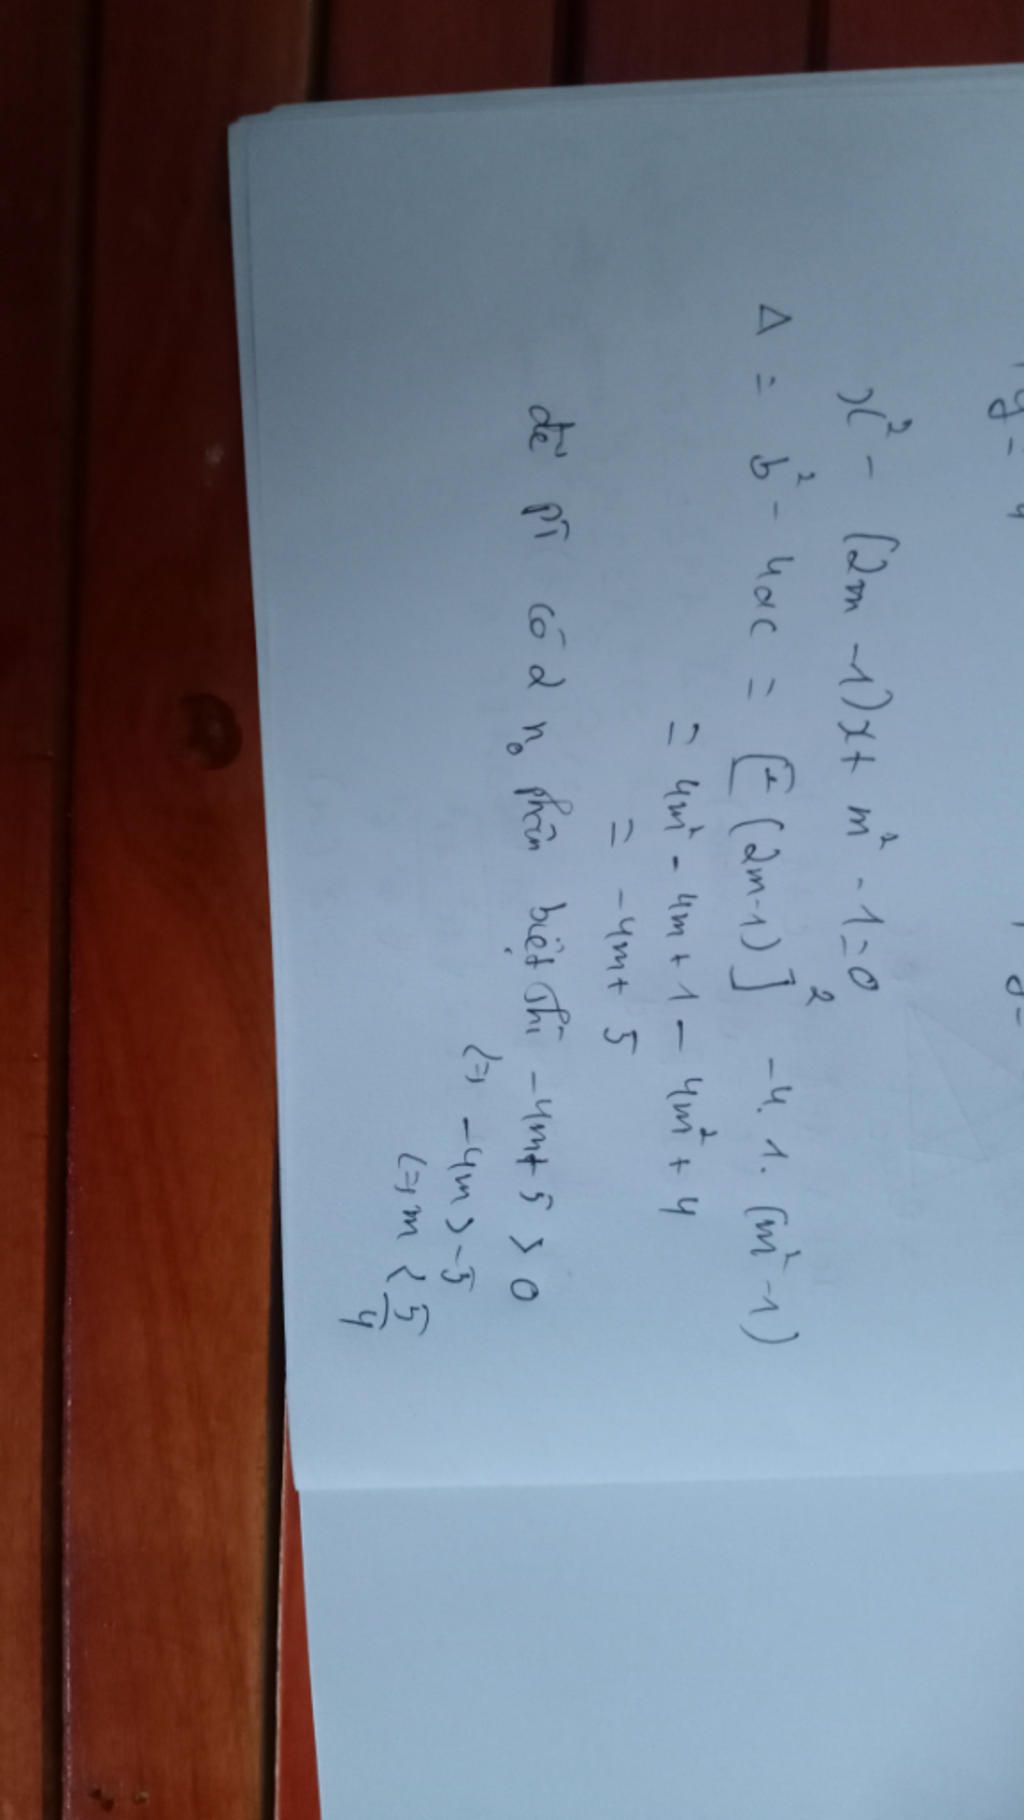 x² - (2m - 1)x + m² - 1 = 0
Δ = b² - 4ac = [-(2m-1)]² - 4. 1. (m² - 1)
= 4m² - 4m + 1 - 4m² + 4
= -4m + 5
để pT có 2 n₀ phân biệt thì -4m + 5 > 0
<=> -4m > -5
<=> m < 5/4